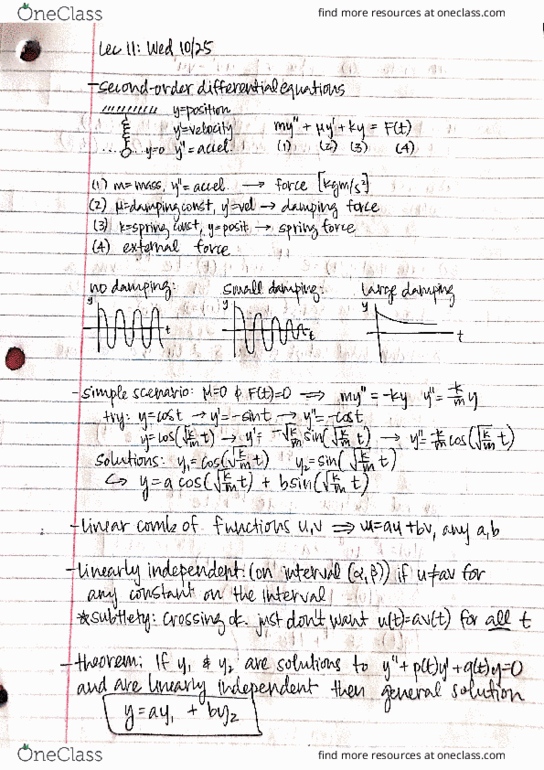 OneClass
find more resources at oneclass.com
Lec 11: Wed 10/25
-second-order differential equations
y=position
y'=velocity my" + μy' + ky = F(t)
y=0 y"=accel. (1) (2) (3) (4)
(1) m=mass, y"=accel → force [kgm/s²]
(2) μ=damping const, y'=vel → damping force
(3) k=spring const, y=posit → spring force
(4) external force
no damping: small damping: large damping
y y y
t t t
-simple scenario: μ=0 & F(t)=0 ⟹ my"=-ky y"=-k/m y
try: y=cost → y'=-sint → y"=-cost
y=cos(√k/m t) → y'=-√k/m sin(√k/m t) → y"=-k/m cos(√k/m t)
solutions: y₁=cos(√k/m t) y₂=sin(√k/m t)
↪ y=a cos(√k/m t) + b sin(√k/m t)
-linear comb of functions u,v ⟹ w=au+bv, any a,b
-linearly independent: (on interval (α,β)) if u≠av for
any constant on the interval
*subtlety: crossing ok. just don't want u(t)=av(t) for all t
-theorem: If y₁ & y₂ are solutions to y"+p(t)y'+q(t)y=0
and are linearly independent then general solution
y=ay₁ + by₂
OneClass
find more resources at oneclass.com